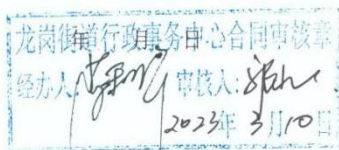 龙岗街道行政事务中心合同审核章
年 月 日
经办人: 审核人:
2023年 3月10日